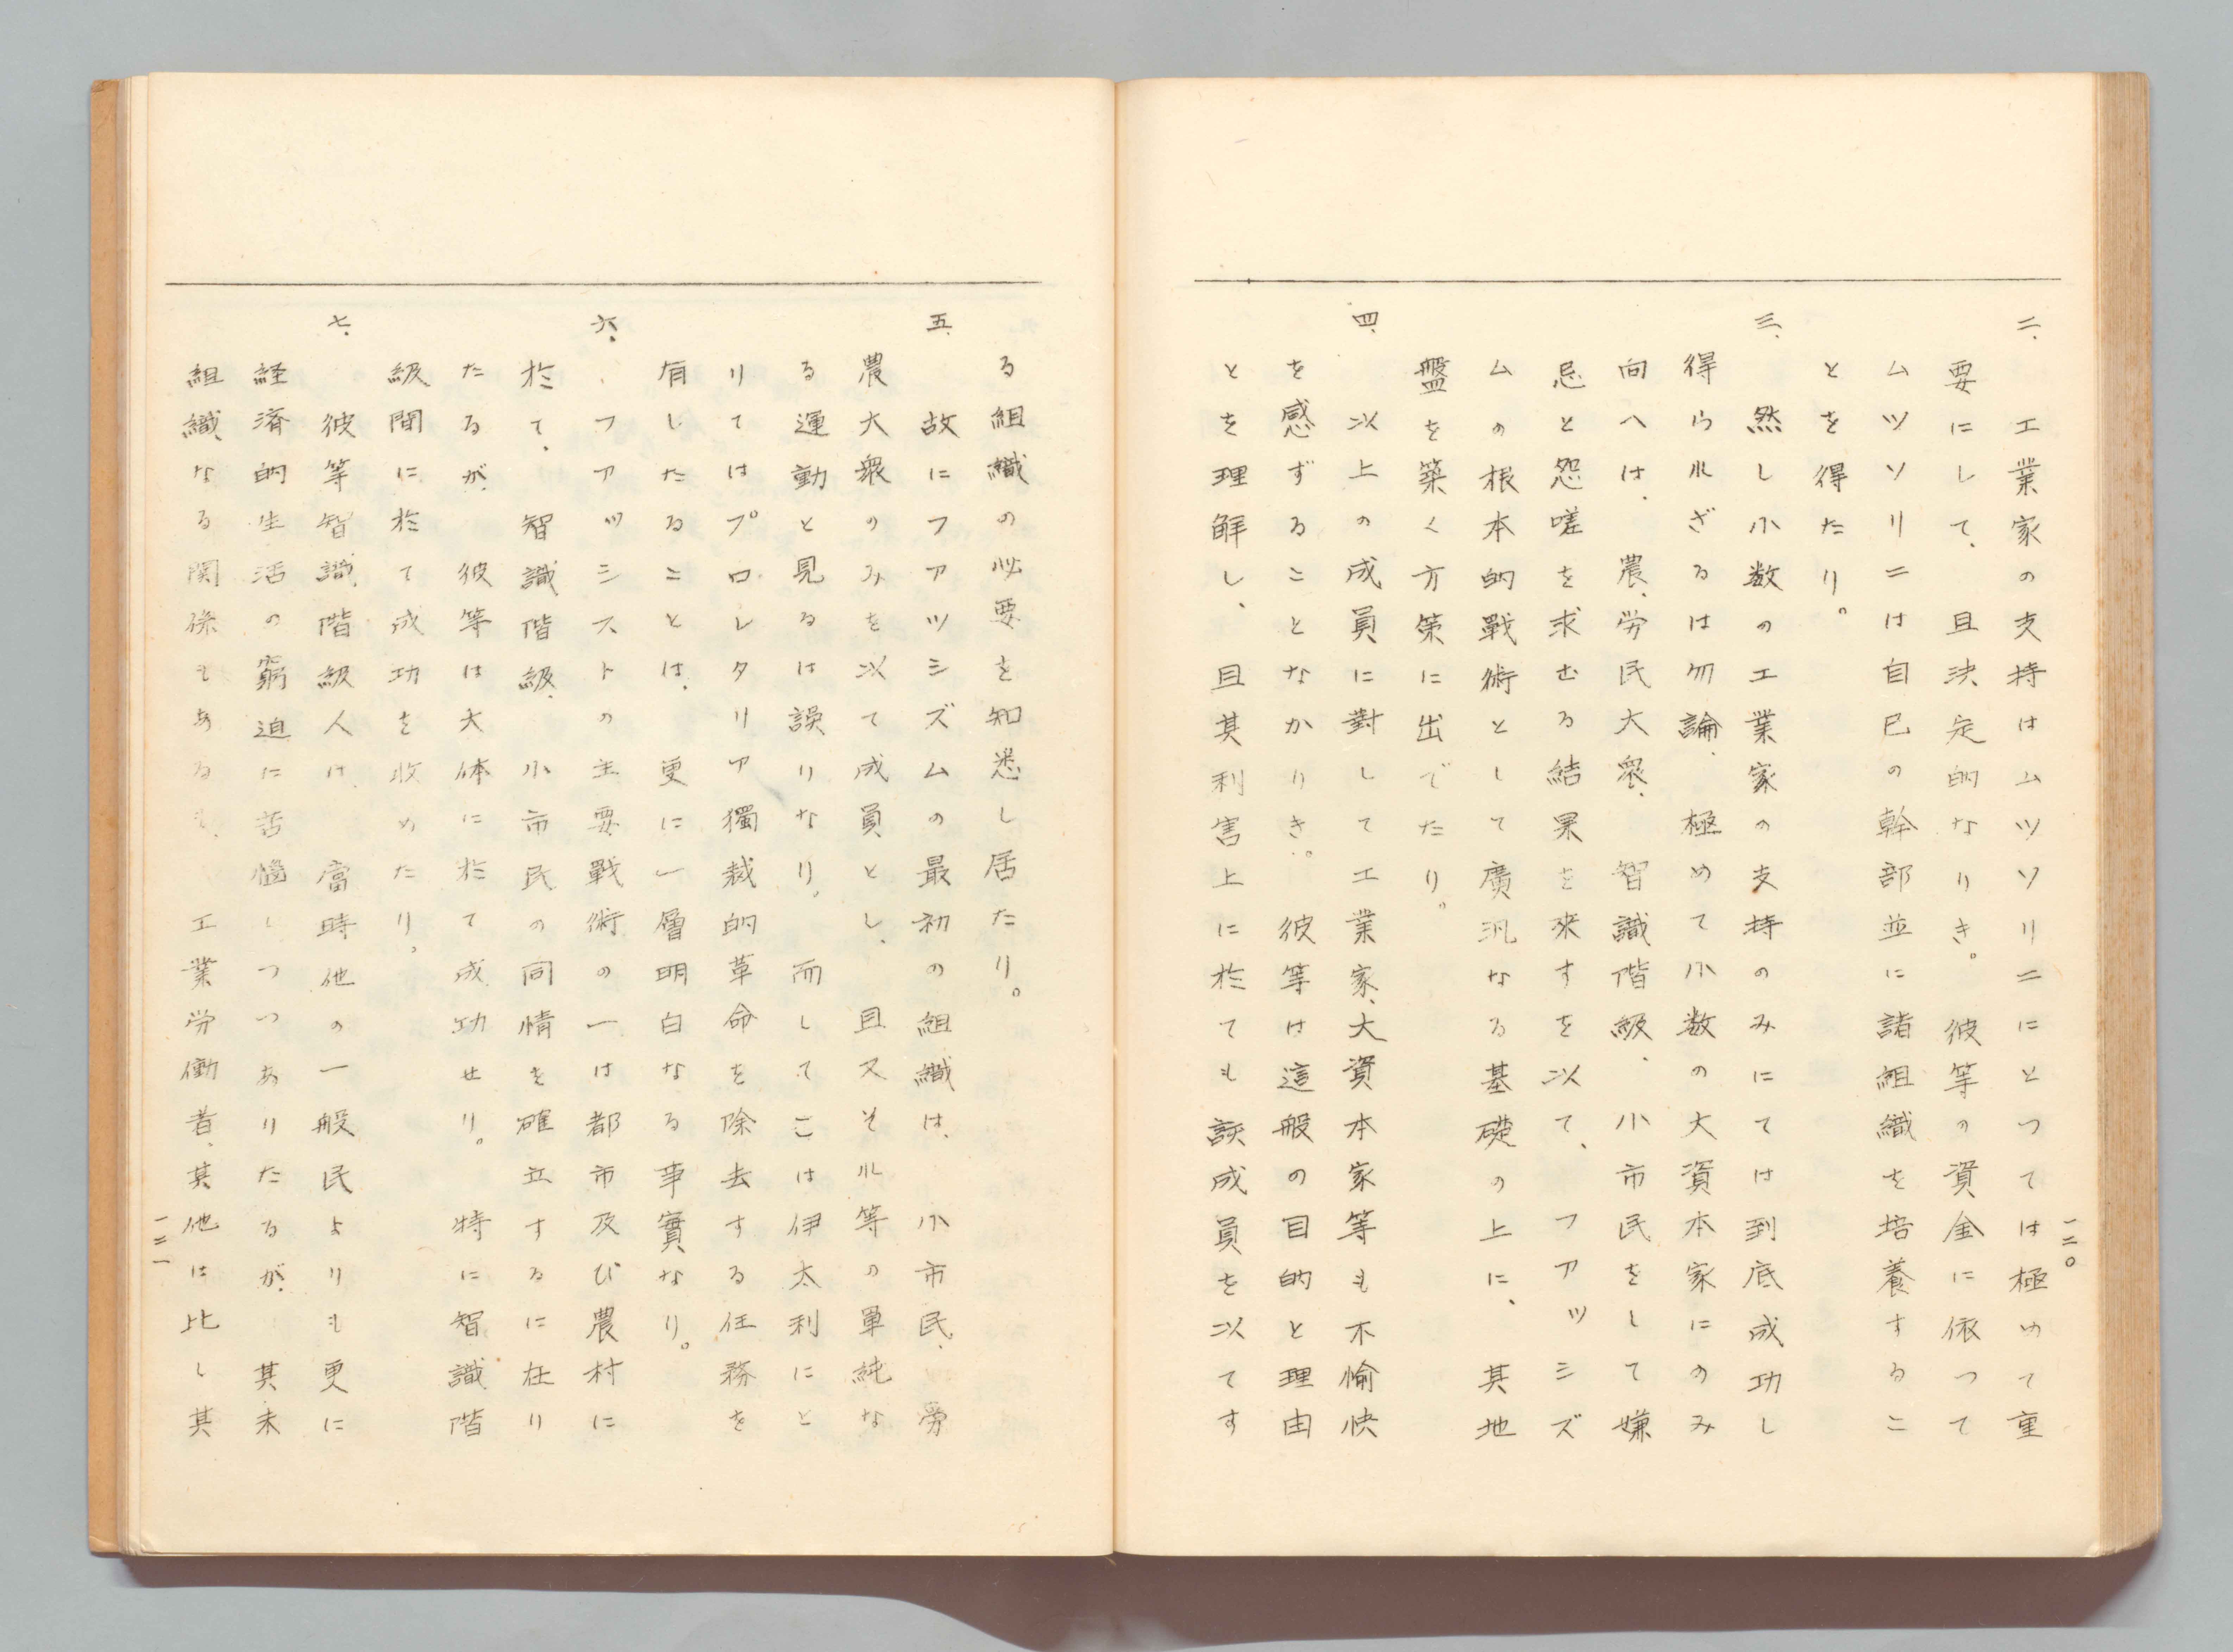 一二〇
二、工業家の支持はムツソリニにとつては極めて重
要にして、且決定的なりき。彼等の資金に依つて
ムツソリニは自己の幹部並に諸組織を培養するこ
とを得たり。
三、然し小数の工業家の支持のみにては到底成功し
得られざるは勿論、極めて小数の大資本家にのみ
向へは、農、労民大衆、智識階級、小市民をして嫌
忌と怨嗟を求むる結果を來すを以て、フアツシズ
ムの根本的戰術として廣汎なる基礎の上に、其地
盤を築く方策に出でたり。
四、以上の成員に對して工業家、大資本家等も不愉快
を感ずることなかりき。彼等は這般の目的と理由
とを理解し、且其利害上に於ても該成員を以てす
る組織の必要を知悉し居たり。
五、故にフアツシズムの最初の組織は、小市民、労
農大衆のみを以て成員とし、且又それ等の單純な
る運動と見るは誤りなり。而してこは伊太利にと
りてはプロレタリア獨裁的革命を除去する任務を
有したることは、更に一層明白なる事實なり。
六、フアツシストの主要戰術の一は都市及び農村に
於て、智識階級、小市民の同情を確立するに在り
たるが、彼等は大体に於て成功せり。特に智識階
級間に於て成功を收めたり。
七、彼等智識階級人は、當時他の一般民よりも更に
経済的生活の窮迫に苦惱しつつありたるが、其未
組織なる関係もあるも、工業労働者、其他は比し其
一二一